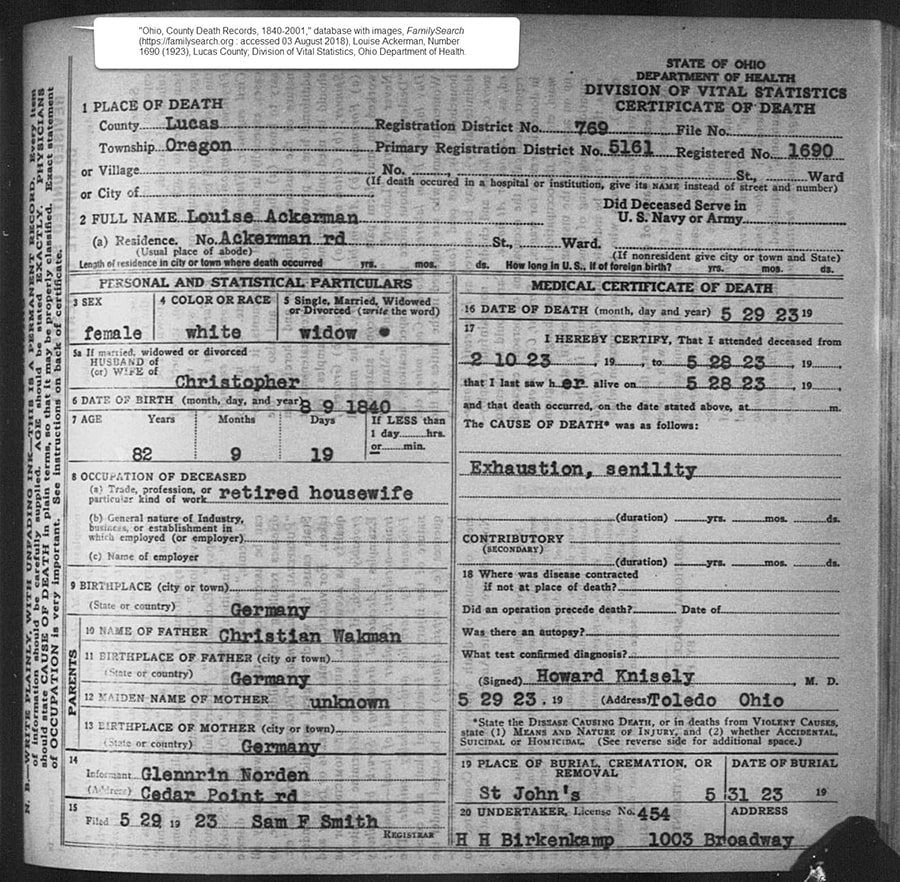 "Ohio, County Death Records, 1840-2001," database with images, FamilySearch
(https://familysearch.org : accessed 03 August 2018), Louise Ackerman, Number
1690 (1923), Lucas County; Division of Vital Statistics, Ohio Department of Health.
STATE OF OHIO
DEPARTMENT OF HEALTH
DIVISION OF VITAL STATISTICS
CERTIFICATE OF DEATH
1 PLACE OF DEATH
County Lucas Registration District No. 769 File No.
Township Oregon Primary Registration District No. 5161 Registered No. 1690
or Village No. , St., Ward
(If death occured in a hospital or institution, give its NAME instead of street and number)
or City of
Did Deceased Serve in
U. S. Navy or Army
2 FULL NAME Louise Ackerman
(a) Residence. No. Ackerman rd St., Ward.
(Usual place of abode) (If nonresident give city or town and State)
Length of residence in city or town where death occurred yrs. mos. ds. How long in U. S., if of foreign birth? yrs. mos. ds.
PERSONAL AND STATISTICAL PARTICULARS
3 SEX
female
4 COLOR OR RACE
white
5 Single, Married, Widowed
or Divorced (write the word)
widow
5a If married, widowed or divorced
HUSBAND of
(or) WIFE of
Christopher
6 DATE OF BIRTH (month, day, and year) 8 9 1840
7 AGE Years Months Days
82 9 19
If LESS than
1 day hrs.
or min.
8 OCCUPATION OF DECEASED
(a) Trade, profession, or
particular kind of work retired housewife
(b) General nature of Industry,
business, or establishment in
which employed (or employer)
(c) Name of employer
9 BIRTHPLACE (city or town)
(State or country) Germany
PARENTS
10 NAME OF FATHER Christian Wakman
11 BIRTHPLACE OF FATHER (city or town)
(State or country) Germany
12 MAIDEN NAME OF MOTHER unknown
13 BIRTHPLACE OF MOTHER (city or town)
(State or country) Germany
14
Informant Glennrin Norden
(Address) Cedar Point rd
15
Filed 5 29 19 23 Sam F Smith
REGISTRAR
MEDICAL CERTIFICATE OF DEATH
16 DATE OF DEATH (month, day and year) 5 29 23 19
17
I HEREBY CERTIFY, That I attended deceased from
2 10 23 , 19 , to 5 28 23 , 19 ,
that I last saw h er alive on 5 28 23 , 19 ,
and that death occurred, on the date stated above, at m.
The CAUSE OF DEATH* was as follows:
Exhaustion, senility
(duration) yrs. mos. ds.
CONTRIBUTORY
(SECONDARY)
(duration) yrs. mos. ds.
18 Where was disease contracted
if not at place of death?
Did an operation precede death? Date of
Was there an autopsy?
What test confirmed diagnosis?
(Signed) Howard Knisely , M. D.
5 29 23 . 19 (Address) Toledo Ohio
*State the DISEASE CAUSING DEATH, or in deaths from VIOLENT CAUSES,
state (1) MEANS AND NATURE OF INJURY, and (2) whether ACCIDENTAL,
SUICIDAL OR HOMICIDAL. (See reverse side for additional space.)
19 PLACE OF BURIAL, CREMATION, OR
REMOVAL
St John's
DATE OF BURIAL
5 31 23 19
20 UNDERTAKER, License No. 454 ADDRESS
H H Birkenkamp 1003 Broadway
N. B.—WRITE PLAINLY, WITH UNFADING INK—THIS IS A PERMANENT RECORD. Every item
of information should be carefully supplied. AGE should be stated EXACTLY. PHYSICIANS
should state CAUSE OF DEATH in plain terms, so that it may be properly classified. Exact statement
of OCCUPATION is very important. See instructions on back of certificate.